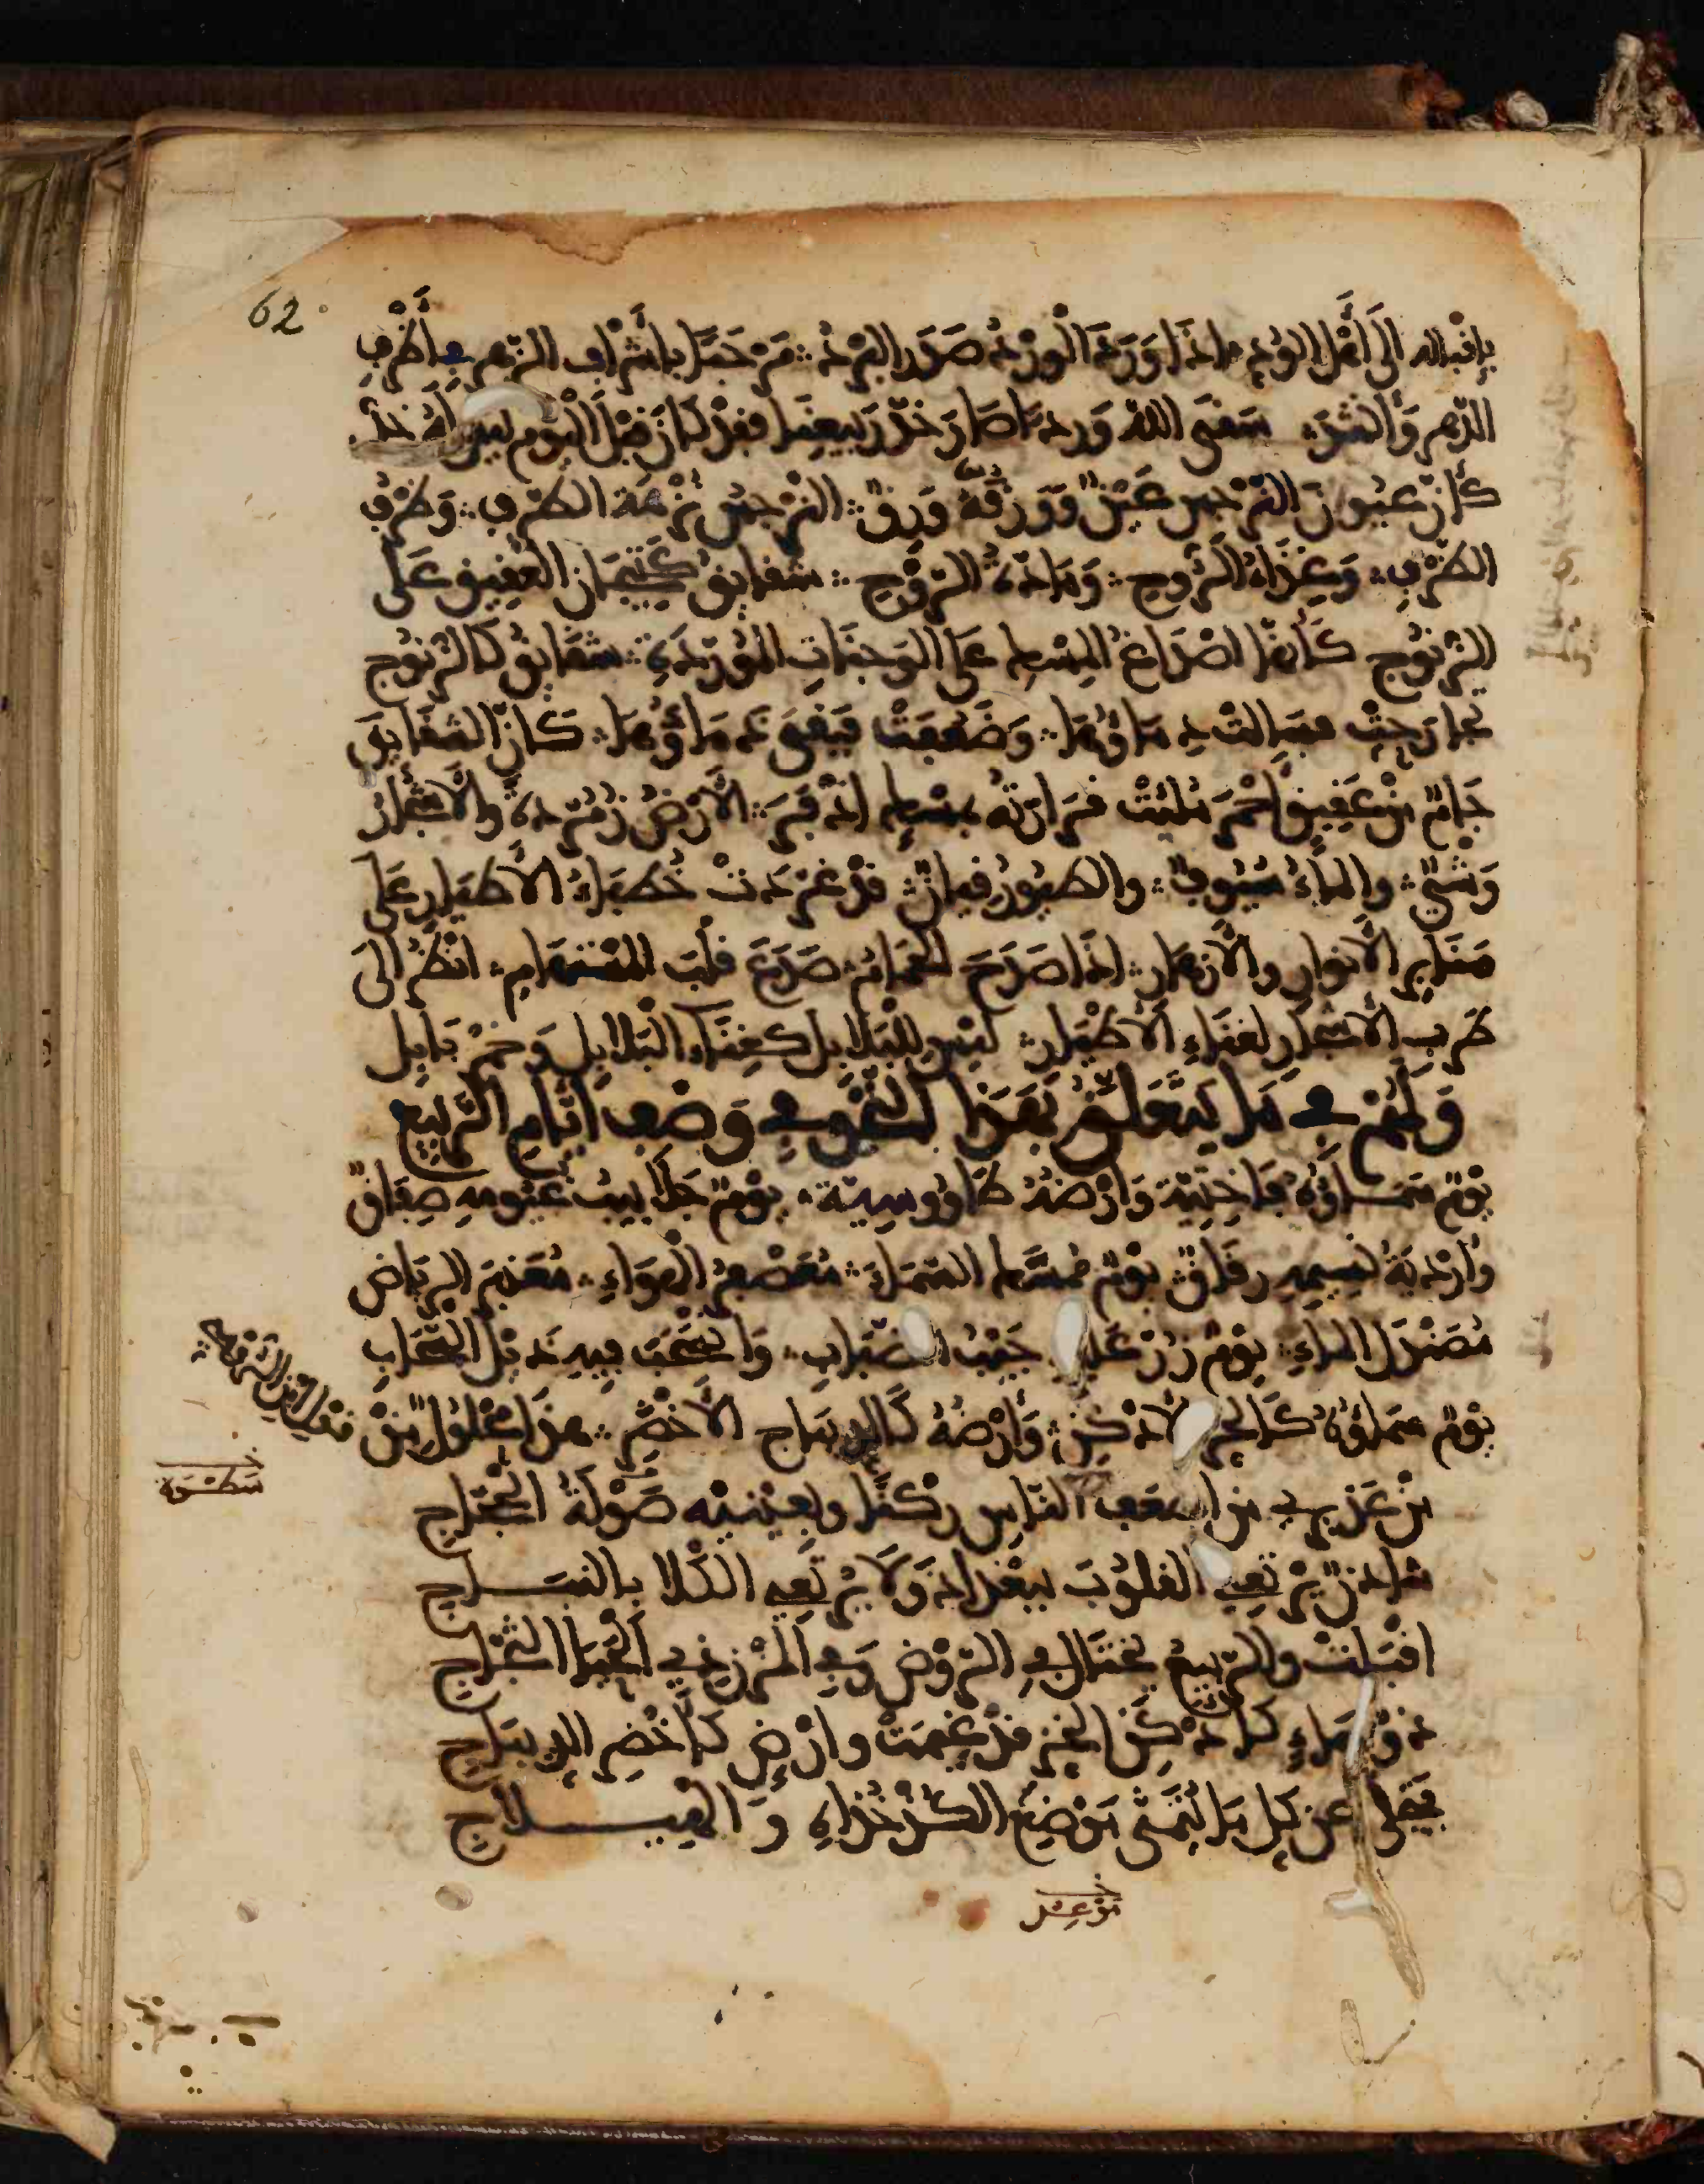 62
بإقباله إلى أهل الودّ إذا وَرَدَ الْوَرْدُ صَدَرَ البَرْدُ ∴ مَرْحَبًا بأشْرَفِ الزّهرِ في أَظْرَفِ
الدّهرِ وَأنشدَ ∴ سَقَى اللهُ وَردًا صَارَ خدَّ رَبِيعِنَا فقدْ كَانَ قَبْلَ الْيَوْمِ ليسَ لَهُ خَدُّ
كَأنّ عيُونَ النّرْجسِ عَيْنٌ وَوَرَقَهُ وَرِقٌ ∴ النرْجِسُ نُزْهَةُ الطّرْفِ ∴ وَظَرْفُ
الظّرْفِ ∴ وَغِذَاءُ الرُّوحِ ∴ وَمَادّةُ الرَّوْحِ ∴ شقايقُ كَتِيجَانِ العَقِيقِ عَلَى
الزّنُوجِ كَأنّهَا أصْدَاغُ المِسْكِ عَلَى الوَجنَاتِ الْمُوَرّدَةِ ∴ شَقَايِقُ كَالزّنُوجِ
تجارَحتْ فسَالتْ دِمَاؤُهَا ∴ وَضَعُفَتْ فَبَقِيَ ذَمَاؤُهَا ∴ كَأنّ الشقَايِقَ
جَامٌ مِنْ عَقِيقٍ أحْمَرَ مُلِئَتْ قَرَارَتُهُ بمسْكٍ أذْفَرَ ∴ الأَرْضُ زُمُرّدةٌ والأَشْجَارُ
وَشْيٌ ∴ والماءُ سُيُوفٌ ∴ والطيُورُ قِيانٌ ∴ قدْ غرّدَتْ خُطبَاءُ الأطيَارِ عَلَى
مَنَابِرِ الأنوَارِ والأَزهَارِ ∴ إذَا صَدَحَ الحمَامُ صَدَعَ قَلْبَ المُسْتَهَامِ ∴ انْظُرْ إلَى
طَرَبِ الأشجَارِ لغنَاءِ الأَطْيَارِ ∴ ليْسَ للْبَلاَبِلِ كغِنَاءِ الْبَلاَبِلِ وَخَمْرِ بَابِلِ
وَلَهُمْ في مَا يَتَعَلّقُ بهَذَا النّحْوِ في وَصْفِ أيّامِ الرّبِيعِ
يوْمٌ سَمَاؤُهُ فَاخِتِيّة وَأرْضُهُ طَاوُوسِيّة ∴ يَوْمٌ جَلاَبِيبُ غُيُومِهِ صِفَاقٌ
وأرْدِيَةُ نَسِيمِهِ رِقَاقٌ ∴ يوْمٌ مُمَسَّكُ السّمَاءِ ∴ مُعَصْفَرُ الْهَوَاءِ ∴ مُعَنْبَرُ الرّيَاضِ
مُصَنْدَلُ الماءِ ∴ يَوْمٌ زُرّ عَلَيْهِ جَيْبُ الضّبَابِ ∴ وَانْسَحَبَ فِيهِ ذَيْلُ السَّحَابِ
يَوْمٌ سَمَاؤُهُ كَالخزِّ الأَدْكَنِ ∴ وَأَرْضُهُ كَالدِيبَاجِ الأَخْضَرِ ∴ هذَا مَحْلُولٌ مِنْ قَوْلِ ابْنِ الرُّومِي
سَطْوَة
مِنْ عَذِيرِي مِنْ أضْعَفِ النّاسِ رُكْنًا وبِعَيْنَيْهِ صَوْلَةُ الحَجّاجِ
شادِنٌ يَرْتَعِي القلُوبَ ببغْدَادَ وَلاَ يَرْتَعِي الكَلا بالنبَـــاجِ
أقْبَلَتْ والرّبِيعُ يختَالُ في الرّوْضِ وَفي المُزْنِ ذِي الْحَيَا الثَجّاجِ
ذو سَمَاءٍ كأدْكَنِ الخزِّ قدْ غُيّمَتْ وأرْضٍ كَأخْضَرِ الدِيبَاجِ
فتجلّى عن كلِّ مَا يُتَمَنّى مَوْضِعَ الكَدْخُذاهِ وَالْهِيـــلاجِ
مَوْعِدَ